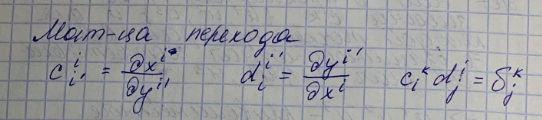 Мат-ца перехода
c^i_{i'} = ∂x^i/∂y^{i'} d^{i'}_i = ∂y^{i'}/∂x^i c_i^k d_j^i = δ_j^k